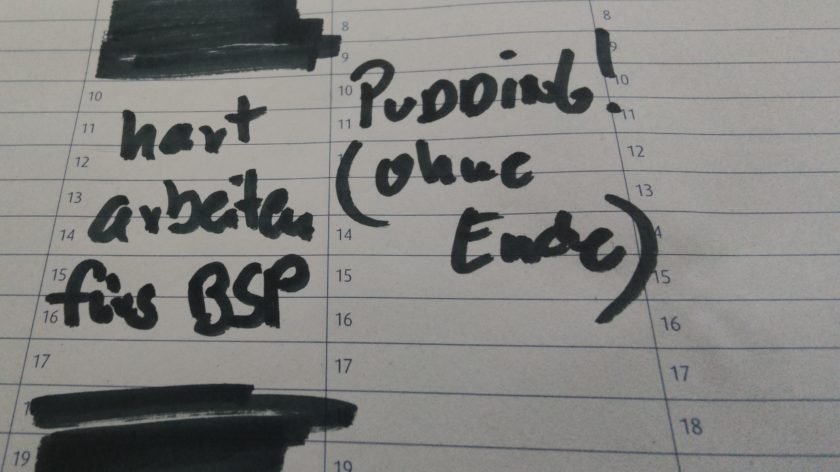 hart
arbeiten
fürs BSP
PUDDING!
(ohne
Ende)
8
9
10
11
12
13
14
15
16
17
19
8
9
10
11
14
15
16
17
19
8
9
10
11
12
13
14
15
16
17
18